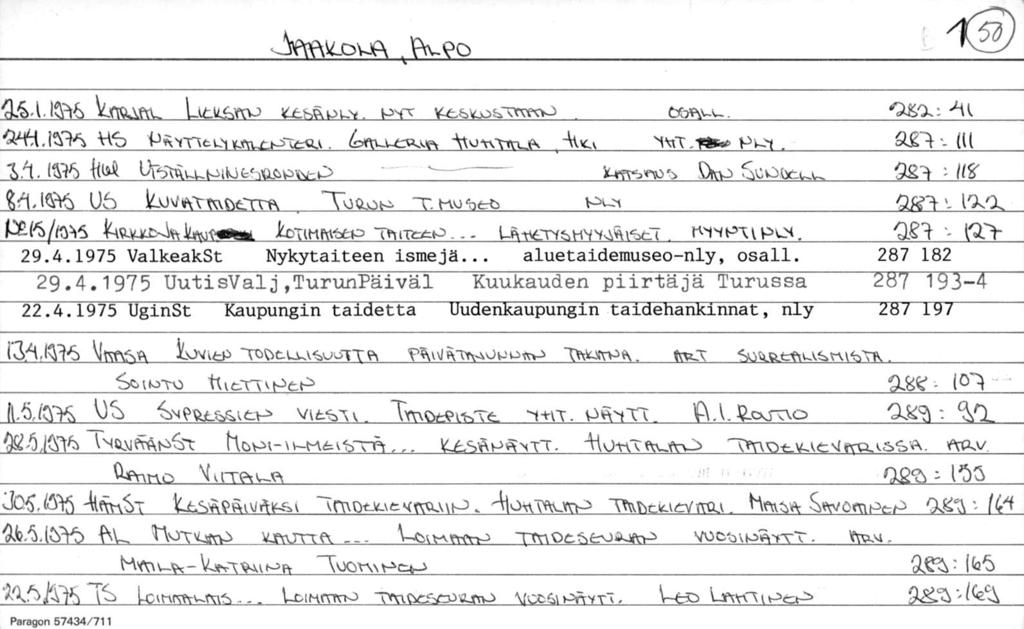 JAAKOLA, ALPO 1 (50)
25.1.1975 KARJAL LIEKSAN KESÄNLY. NYT KESKUSTAAN. OSALL. 282: 41
24.4.1975 HS NÄYTTELYKALENTERI. GALLERIA HUHTALA, HKI YHT. NLY. 287: 111
3.4.1975 Hbl UTSTÄLLNINGSRONDEN KATSAUS DAN SUNDELL 287: 118
8.4.1975 US KUVATAIDETTA TURUN T.MUSEO NLY 287: 122
No 15/1975 KIRKKO JA KAUP KOTIMAISEN TAITEEN... LÄHETYSMYYJÄISET. MYYNTINLY. 287: 127
29.4.1975 ValkeakSt Nykytaiteen ismejä... aluetaidemuseo-nly, osall. 287 182
29.4.1975 UutisValj,TurunPäiväl Kuukauden piirtäjä Turussa 287 193-4
22.4.1975 UginSt Kaupungin taidetta Uudenkaupungin taidehankinnat, nly 287 197
13.4.1975 VAASA KUVIEN TODELLISUUTTA PÄIVÄTAJUNNAN TAKANA. ART SURREALISMISTA.
SOINTU MIETTINEN 288: 107
11.5.1975 US SVPRESSIEN VIESTI. TAIDEPISTE YHT. NÄYTT. A.I. ROUTIO 289: 92
28.5.1975 TYRVÄÄNST MONI-ILMEISTÄ... KESÄNÄYTT. HUHTALAN TAIDEKIEVARISSA. ARV.
RAIMO VIITALA 289: 155
30.5.1975 HÄMST KESÄPÄIVÄKSI TAIDEKIEVARIIN. HUHTALAN TAIDEKIEVARI. MAISA SAVOAINEN 289: 164
26.5.1975 AL MUTKAN KAUTTA ... LOIMAAN TAIDESEURAN VUOSINÄYTT. ARV.
MAILA-KATRIINA TUOMINEN 289: 165
22.5.1975 TS LOIMAALAIS... LOIMAAN TAIDESEURAN VUOSINÄYTT. LEO LAHTINEN 289: 169
Paragon 57434/711